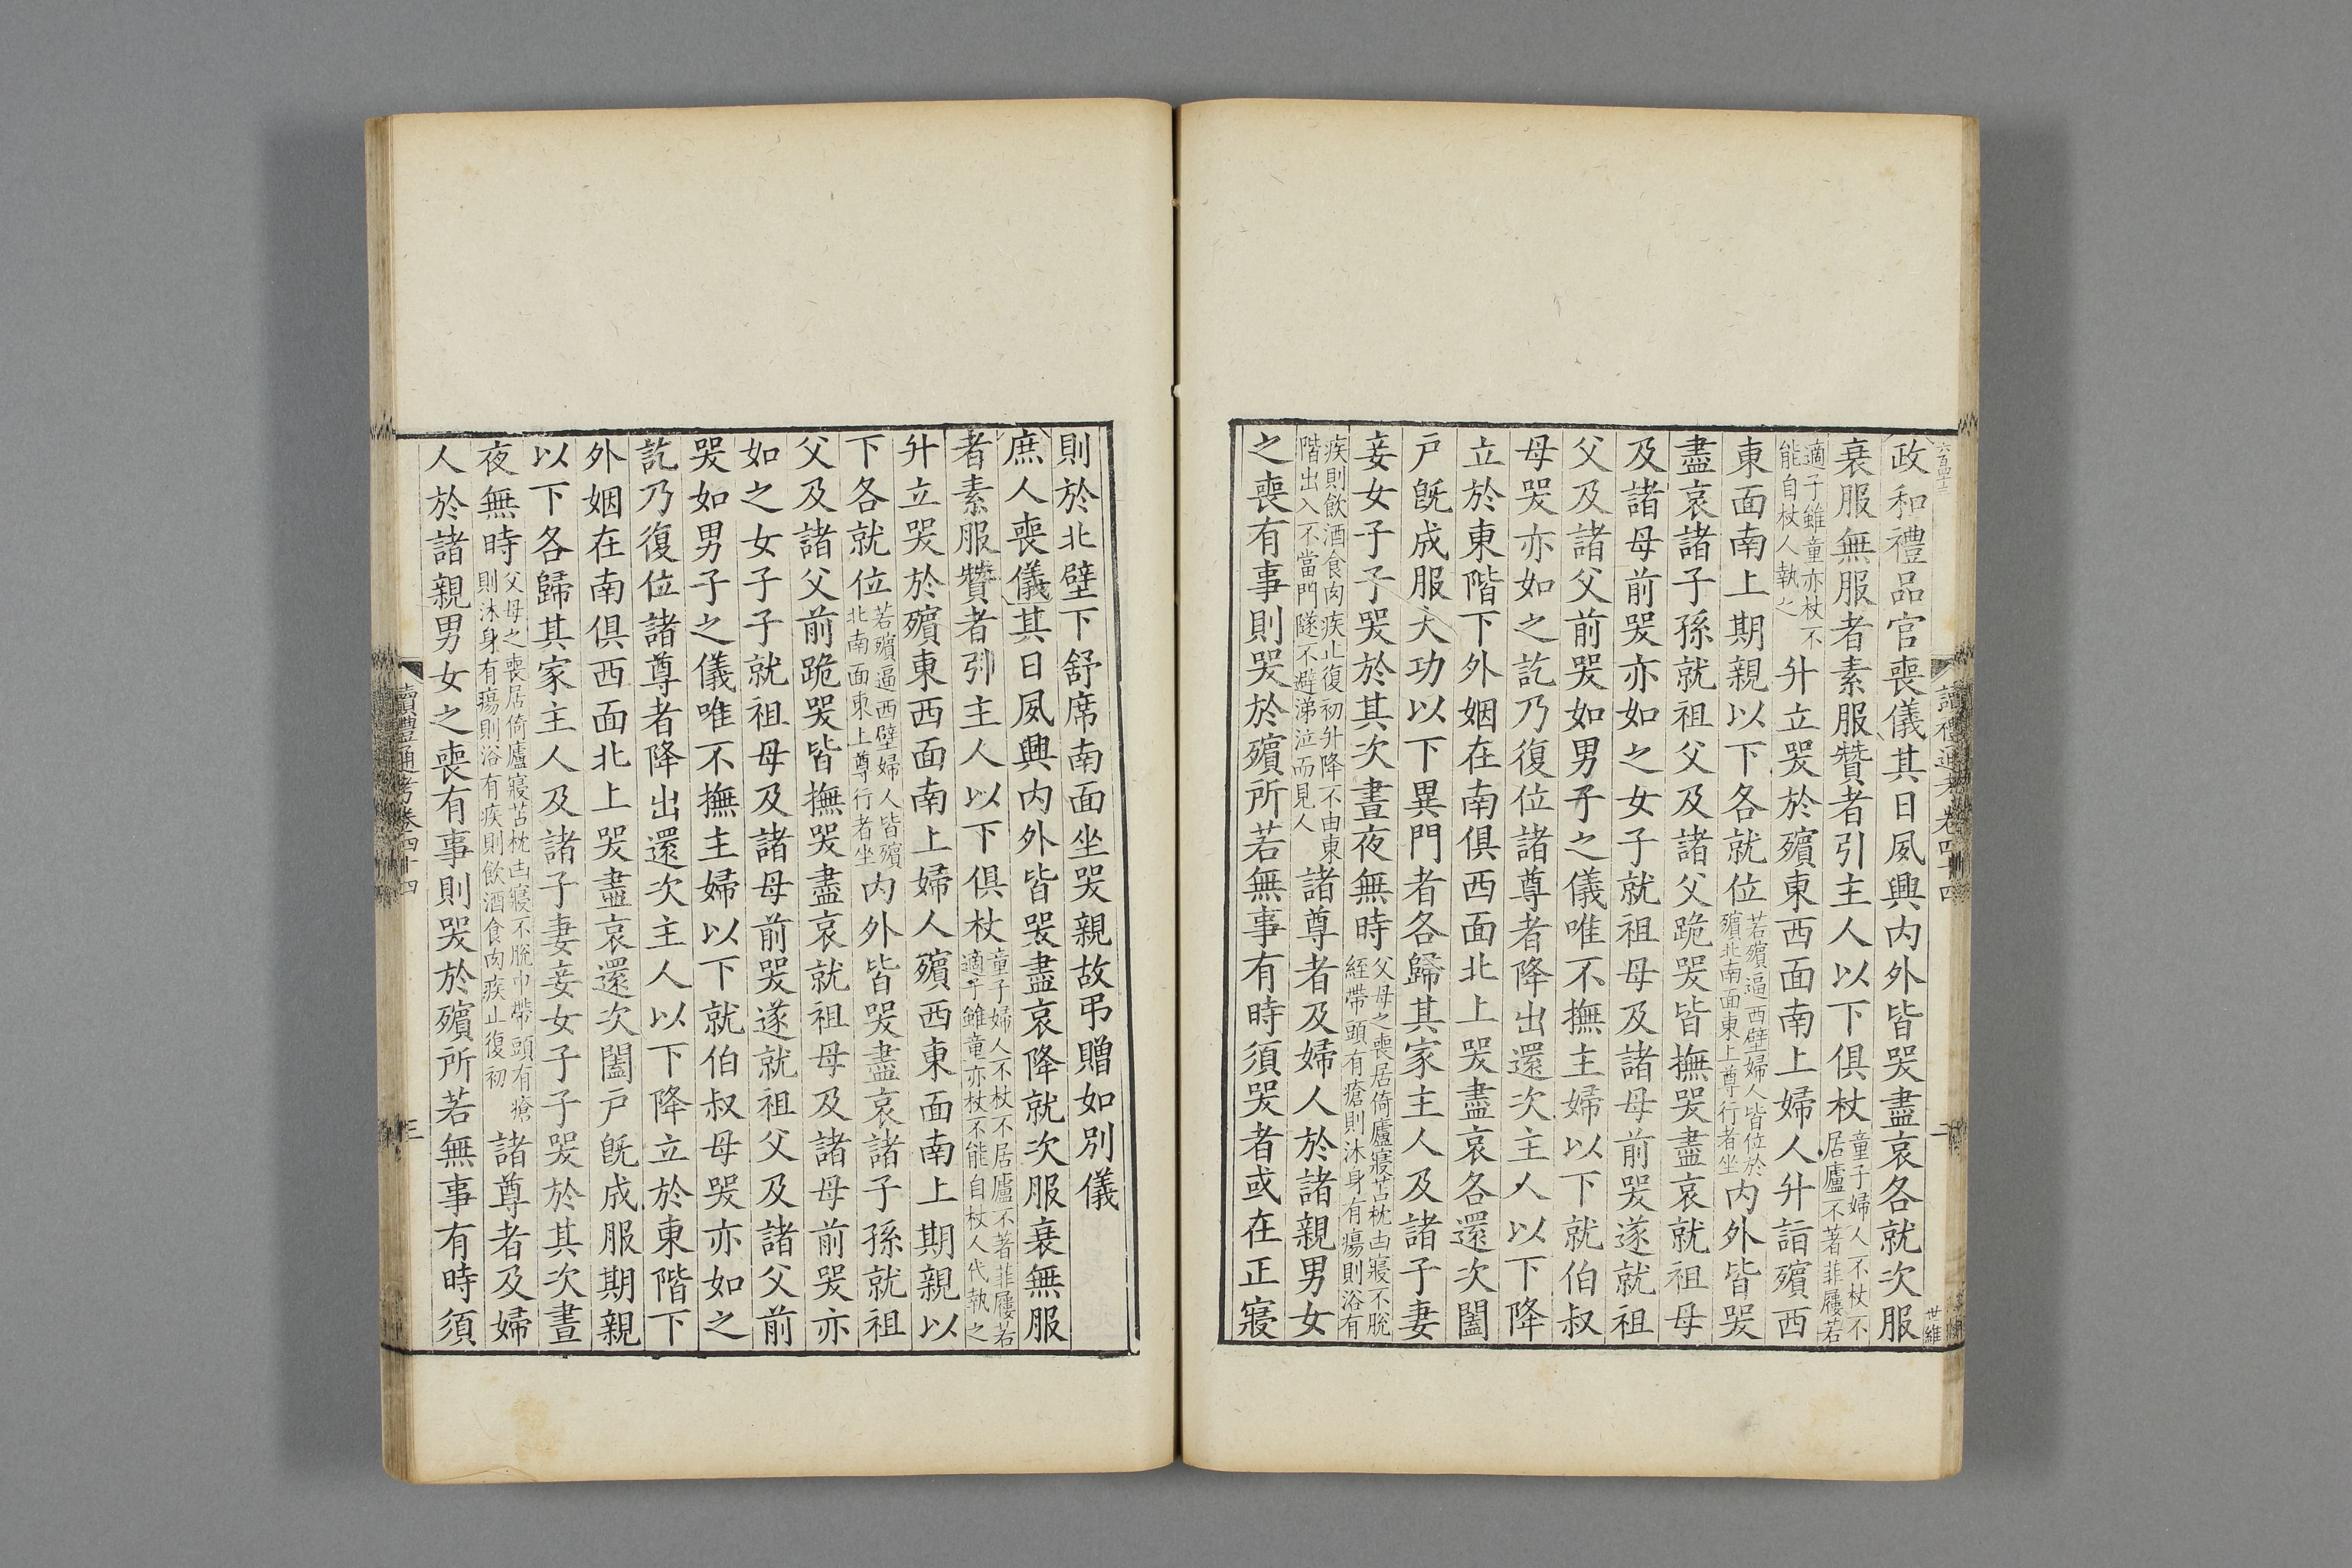 政和禮品官喪儀其日夙興內外皆哭盡哀各就次服
衰服無服者素服贊者引主人以下俱杖童子婦人不杖不居廬不著菲屨若
適子雖童亦杖不能自杖人執之升立哭於殯東西面南上婦人升詣殯西
東面南上期親以下各就位若殯逼西壁婦人皆位於殯北南面東上尊行者坐內外皆哭
盡哀諸子孫就祖父及諸父跪哭皆撫哭盡哀就祖母
及諸母前哭亦如之女子就祖母及諸母前哭遂就祖
父及諸父前哭如男子之儀唯不撫主婦以下就伯叔
母哭亦如之訖乃復位諸尊者降出還次主人以下降
立於東階下外姻在南俱西面北上哭盡哀各還次闔
戶旣成服大功以下異門者各歸其家主人及諸子妻
妾女子子哭於其次晝夜無時父母之喪居倚廬寢苫枕凷寢不脫絰帶頭有瘡則沐身有瘍則浴有
疾則飲酒食肉疾止復初升降不由東階出入不當門隧不避涕泣而見人諸尊者及婦人於諸親男女
之喪有事則哭於殯所若無事有時須哭者或在正寢
讀禮通考卷四十四
則於北壁下舒席南面坐哭親故弔贈如別儀
庶人喪儀其日夙興內外皆哭盡哀降就次服衰無服
者素服贊者引主人以下俱杖童子婦人不杖不居廬不著菲屨若適子雖童亦杖不能自杖人代執之
升立哭於殯東西面南上婦人殯西東面南上期親以
下各就位若殯逼西壁婦人皆殯北南面東上尊行者坐內外皆哭盡哀諸子孫就祖
父及諸父前跪哭皆撫哭盡哀就祖母及諸母前哭亦
如之女子子就祖母及諸母前哭遂就祖父及諸父前
哭如男子之儀唯不撫主婦以下就伯叔母哭亦如之
訖乃復位諸尊者降出還次主人以下降立於東階下
外姻在南俱西面北上哭盡哀還次闔戶旣成服期親
以下各歸其家主人及諸子妻妾女子子哭於其次晝
夜無時父母之喪居倚廬寢苫枕凷寢不脫巾帶頭有瘡則沐身有瘍則浴有疾則飲酒食肉疾止復初諸尊者及婦
人於諸親男女之喪有事則哭於殯所若無事有時須
讀禮通考卷四十四
三